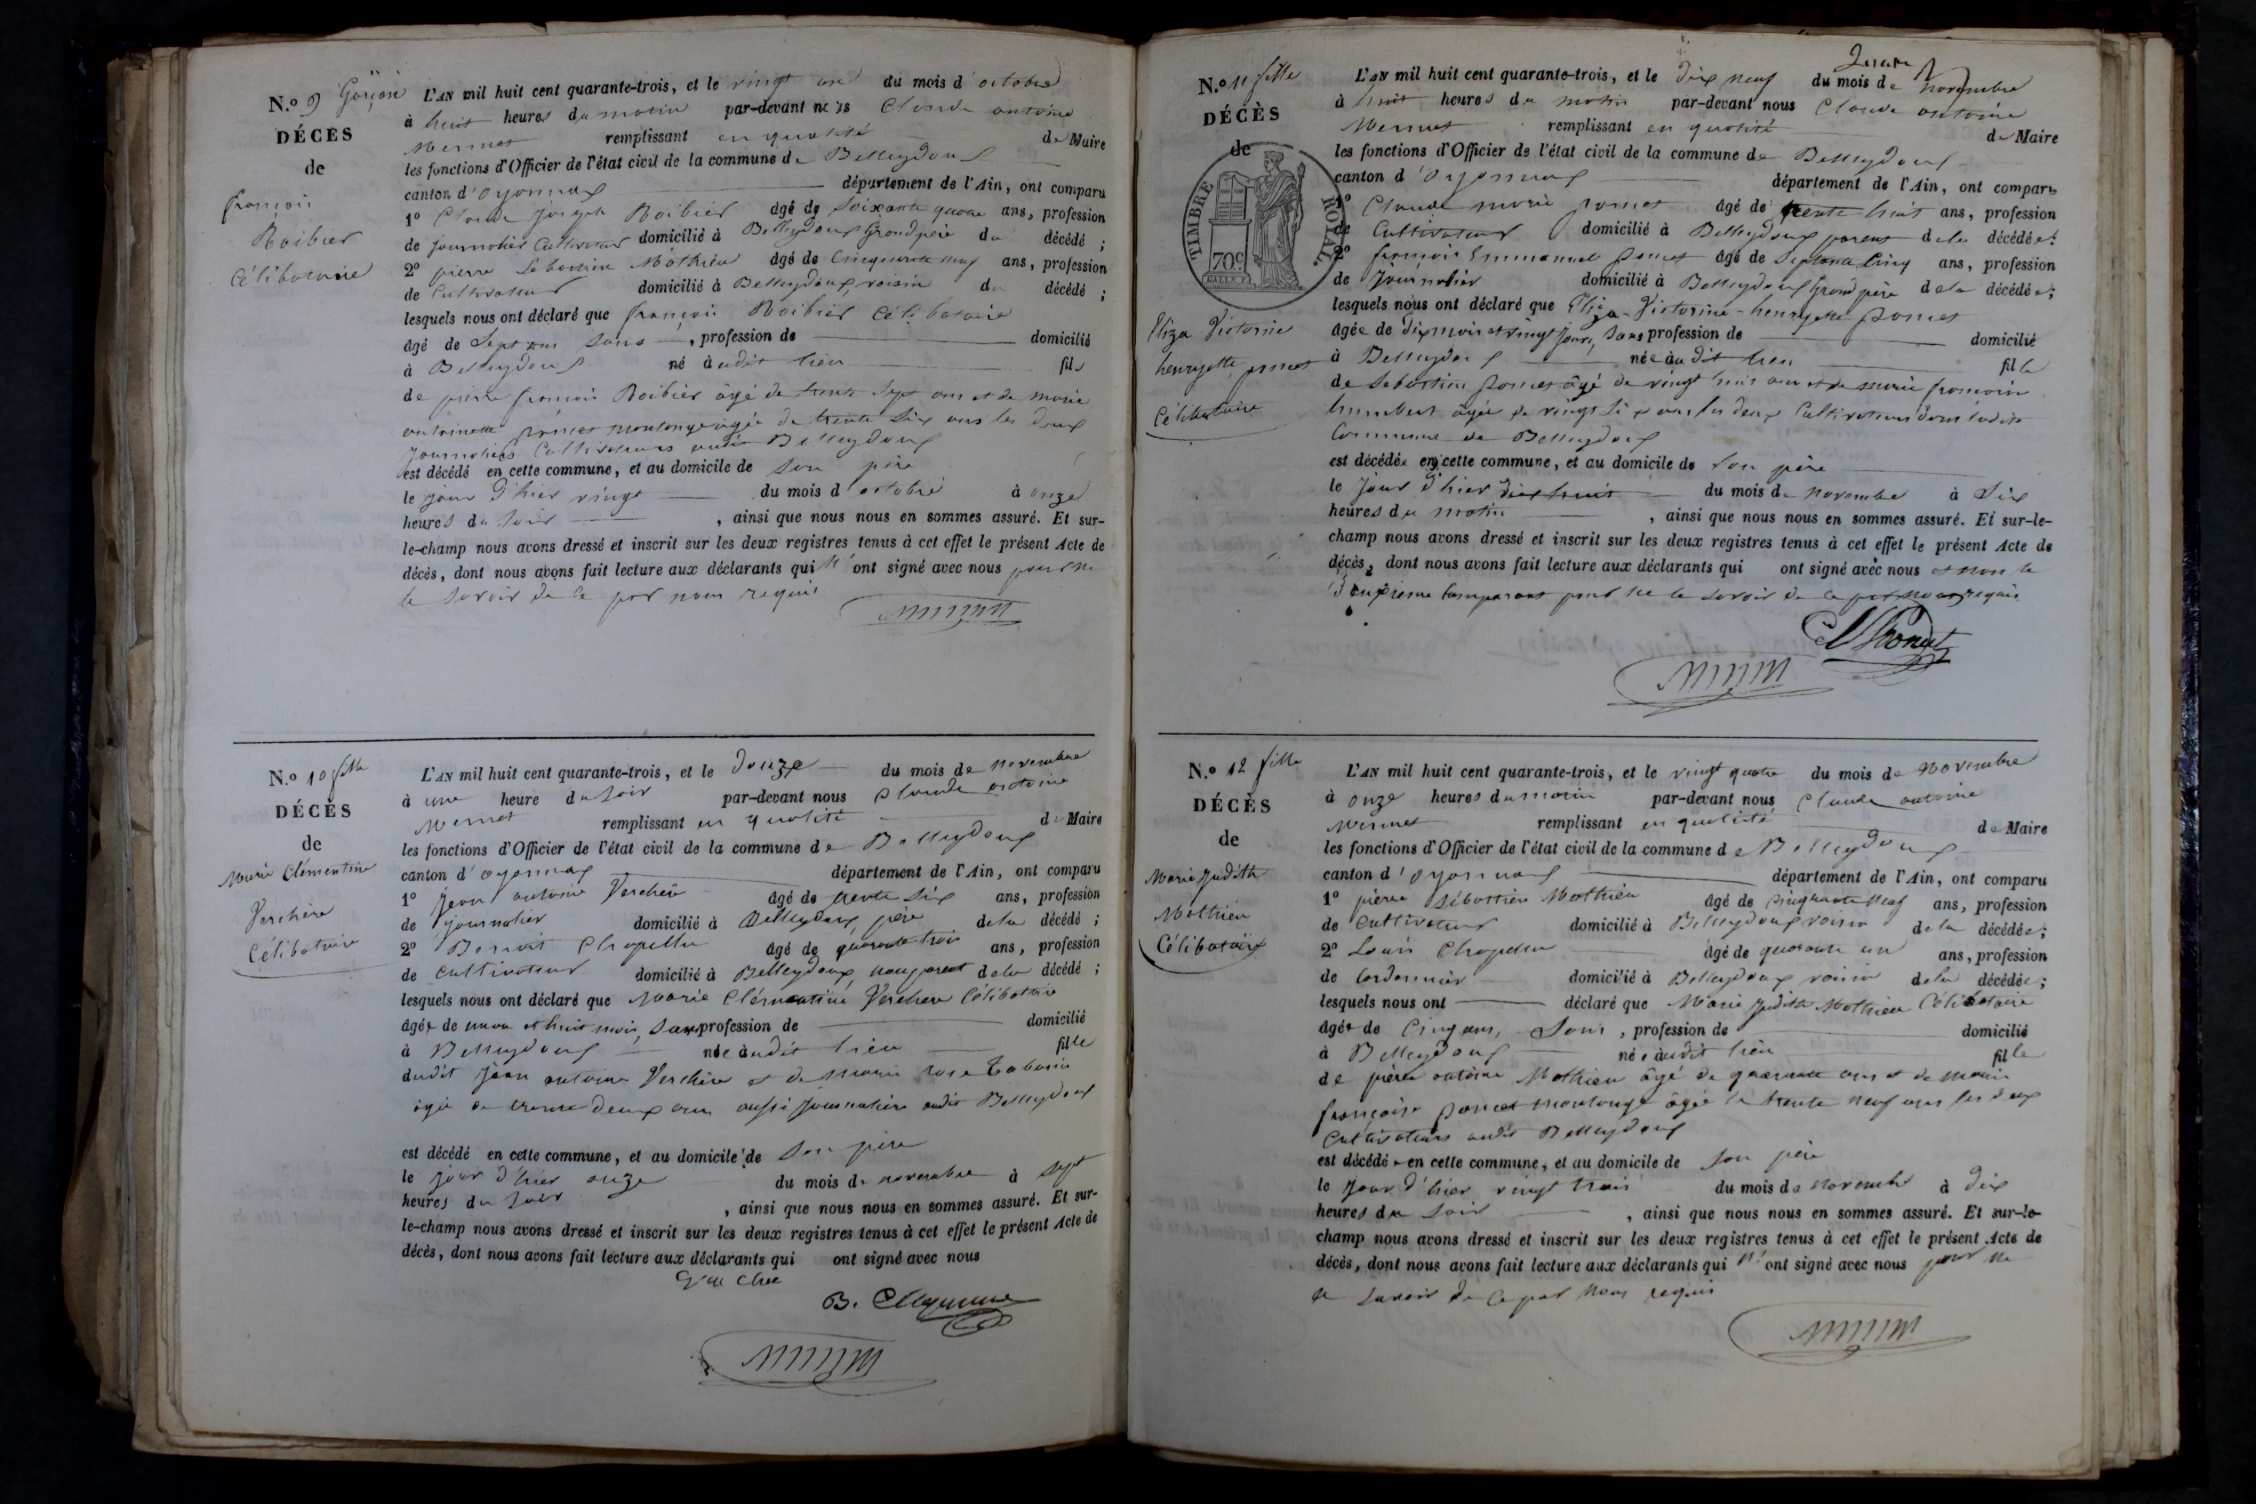 N.o 9 Garçon
DÉCÈS
de
françois
Roibier
Célibataire
L'AN mil huit cent quarante-trois, et le vingt un du mois d'octobre
à huit heures du matin par-devant nous Claude antoine
Mermet remplissant en qualité de Maire
les fonctions d'Officier de l'état civil de la commune de Belleydoux
canton d'oyonnax département de l'Ain, ont comparu
1o Claude joseph Roibier âgé de soixante quatre ans, profession
de journalier Cultivateur domicilié à Belleydoux Grand père du décédé ;
2o pierre Sebastien Mathieu âgé de Cinquante neuf ans, profession
de Cultivateur domicilié à Belleydoux, voisin du décédé ;
lesquels nous ont déclaré que françois Roibier Célibataire
âgé de Sept ans sans , profession de domicilié
à Belleydoux né audit lieu fils
de pierre françois Roibier âgé de trente sept ans et de marie
antoinette poncet montange âgée de trente six ans les deux
journaliers Cultivateurs audit Belleydoux
est décédé en cette commune, et au domicile de son père
le jour d'hier vingt du mois d'octobre à onze
heures du soir , ainsi que nous nous en sommes assuré. Et sur-
le-champ nous avons dressé et inscrit sur les deux registres tenus à cet effet le présent Acte de
décès, dont nous avons fait lecture aux déclarants qui n'ont signé avec nous pour ne
le savoir de ce par nous requis
N.o 10 fille
DÉCÈS
de
Marie Clémentine
Verchère
Célibataire
L'AN mil huit cent quarante-trois, et le douze du mois de novembre
à une heure du soir par-devant nous Claude antoine
Mermet remplissant en qualité de Maire
les fonctions d'Officier de l'état civil de la commune de Belleydoux
canton d'oyonnax département de l'Ain, ont comparu
1o Jean antoine Verchère âgé de trente six ans, profession
de journalier domicilié à Belleydoux père de la décédé ;
2o Benoit Chapelu âgé de quarante trois ans, profession
de cultivateur domicilié à Belleydoux, non parent de la décédé ;
lesquels nous ont déclaré que Marie Clémentine Verchère Célibataire
âgée de un an et huit mois, sans profession de domicilié
à Belleydoux née audit lieu fille
dudit Jean antoine Verchère et de Marie rose
âgée de trente deux ans aussi journalière audit Belleydoux
est décédé en cette commune, et au domicile de son père
le jour d'hier onze du mois de novembre à sept
heures du soir , ainsi que nous nous en sommes assuré. Et sur-
le-champ nous avons dressé et inscrit sur les deux registres tenus à cet effet le présent Acte de
décès, dont nous avons fait lecture aux déclarants qui ont signé avec nous
B.
N.o 11 fille
DÉCÈS
de
TIMBRE ROYAL.
70c
Eliza Victorine
henryette poncet
Célibataire
L'AN mil huit cent quarante-trois, et le dix neuf du mois de Novembre
à huit heures du matin par-devant nous Claude antoine
Mermet remplissant en qualité de Maire
les fonctions d'Officier de l'état civil de la commune de Belleydoux
canton d'oyonnax département de l'Ain, ont comparu
1o Claude marie poncet âgé de trente huit ans, profession
de Cultivateur domicilié à Belleydoux parent de la décédée ;
2o françois Emmanuel poncet âgé de Septante Cinq ans, profession
de Journalier domicilié à Belleydoux Grand père de la décédée ;
lesquels nous ont déclaré que Eliza-Victorine-henryette poncet
âgée de dix mois et vingt jours, sans profession de domicilié
à Belleydoux née audit lieu fille
de Sebastien poncet âgé de vingt huit ans et de marie françoise
humbert âgée de vingt six ans les deux Cultivateurs dans ladite
Commune de Belleydoux
est décédée en cette commune, et au domicile de son père
le jour d'hier dix huit du mois de novembre à Six
heures du matin , ainsi que nous nous en sommes assuré. Et sur-le-
champ nous avons dressé et inscrit sur les deux registres tenus à cet effet le présent Acte de
décès, dont nous avons fait lecture aux déclarants qui ont signé avec nous et non le
deuxième Comparant pour ne le savoir de ce par nous requis
N.o 12 fille
DÉCÈS
de
Marie Judith
Mathieu
Célibataire
L'AN mil huit cent quarante-trois, et le vingt quatre du mois de Novembre
à onze heures du matin par-devant nous Claude antoine
Mermet remplissant en qualité de Maire
les fonctions d'Officier de l'état civil de la commune de Belleydoux
canton d'Oyonnax département de l'Ain, ont comparu
1o pierre Sébastien Mathieu âgé de Cinquante neuf ans, profession
de Cultivateur domicilié à Belleydoux voisin de la décédée ;
2o Louis Chapelu âgé de quarante un ans, profession
de Cordonnier domicilié à Belleydoux voisin de la décédée ;
lesquels nous ont déclaré que Marie Judith Mathieu Célibataire
âgée de Cinq ans, Sans , profession de domicilié
à Belleydoux née audit lieu fille
de pierre antoine Mathieu âgé de quarante ans et de Marie
françoise poncet montange âgée de trente neuf ans les deux
Cultivateurs audit Belleydoux
est décédée en cette commune, et au domicile de son père
le jour d'hier vingt trois du mois de Novembre à dix
heures du soir , ainsi que nous nous en sommes assuré. Et sur-le-
champ nous avons dressé et inscrit sur les deux registres tenus à cet effet le présent Acte de
décès, dont nous avons fait lecture aux déclarants qui n'ont signé avec nous pour ne
le savoir de ce par nous requis